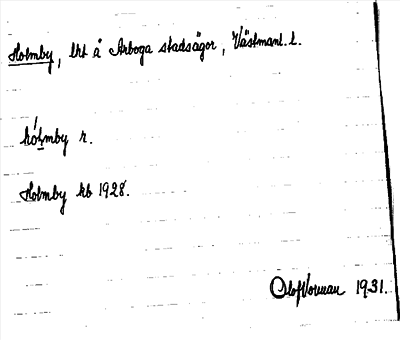 Holmby, lht å Arboga stadsägor, Västmanl. l.
hó̱lmby r.
Holmby kb 1928.
Olof Vorman 1931.